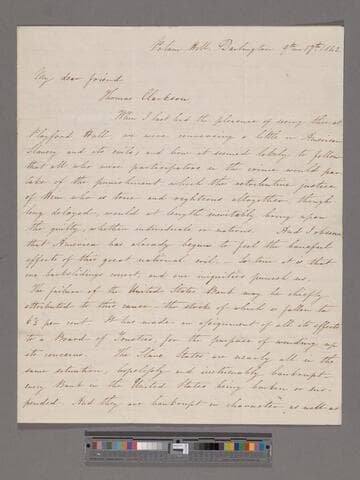 Polam Hill. Darlington 9th 17th 1842
My dear friend
Thomas Clarkson
When I last had the pleasure of seeing thee at
Playford Hall, we were conversing a little on American
Slavery and its evils; and how it seemed likely to follow
that all who were participators in the crime would par-
take of the punishment which the retributive justice
of Him who is true and righteous altogether, though
long delayed, would at length inevitably bring upon
the guilty, whether individuals or nations. And I observe
that America has already begun to feel the baneful
effects of this great national evil. So true it is that
our backslidings correct, and our iniquities punish us.
The failure of the United States Bank may be chiefly
attributed to this cause. the stock of which is fallen to
6½ per cent. It has made an assignment of all its effects
to a Board of Trustees, for the purpose of winding up
its concerns. The Slave States are nearly all in the
same situation, hopelessly and irretrievably bankrupt.
every Bank in the United States being broken or sus-
pended. And they are bankrupt in character, as well as